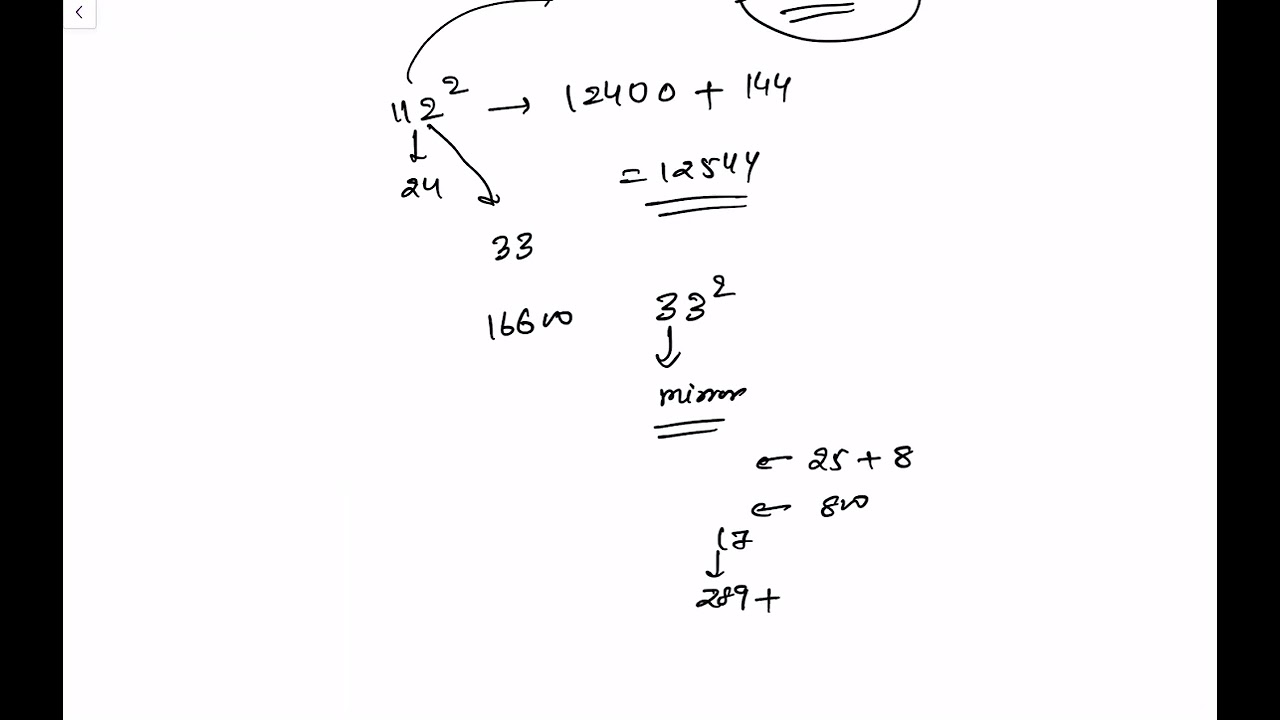 112² → 12400 + 144
24
= 12544
33
16600
33²
mirror
← 25 + 8
← 800
17
289 +